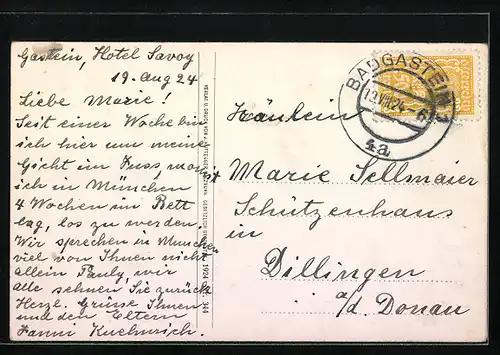 Gastein, Hotel Savoy
19. Aug 24
Liebe Marie!
Seit einer Woche bin
ich hier um meine
Gicht im Fuss womit
ich in München
4 Wochen im Bett
lag, los zu werden.
Wir sprechen in München
viel von Ihnen nicht
allein Pauly, wir
alle sehnen Sie zurück
Herzl. Grüsse Ihnen
und den Eltern
Fanni
1924 344
BADGASTEIN 1
19.VIII.24
4a
Fräulein
Marie Sellmaier
Schützenhaus
in
Dillingen
a/d. Donau